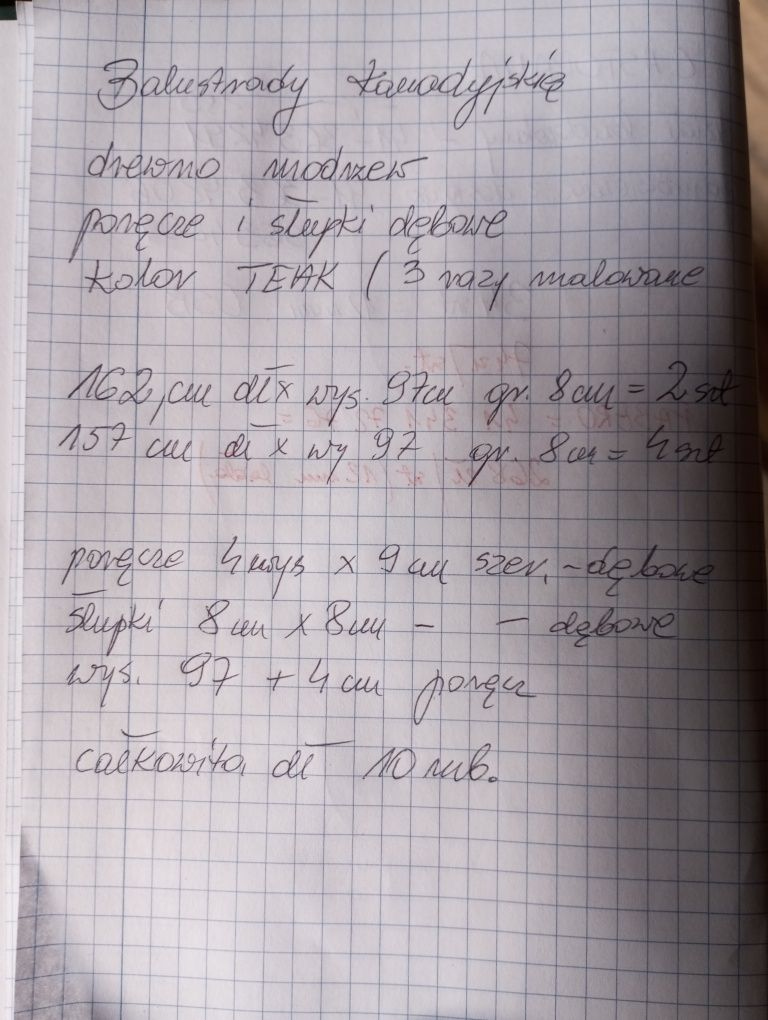 Balustrady kanadyjskię
drewno modrzew
poręcze i słupki dębowe
kolor TEAK ( 3 razy malowane
162,cm dł x wys. 97cm gr. 8cm = 2szt
157 cm dł x wy 97 gr. 8cm = 4szt
poręcze 4 wys x 9 cm szer. - dębowe
słupki 8cm x 8cm - - dębowe
wys. 97 + 4 cm poręcz
całkowita dł 10 mb.